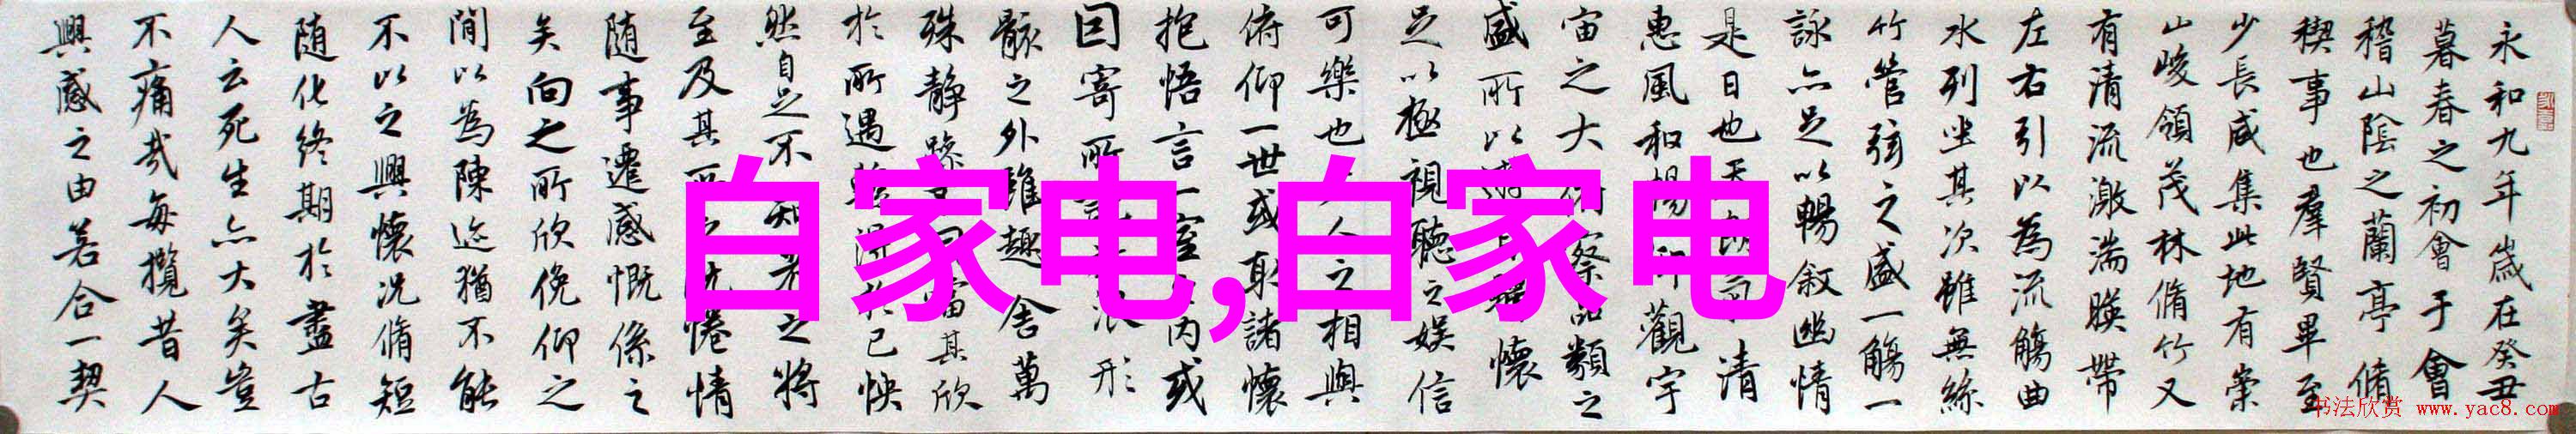 永和九年歲在癸丑
暮春之初會于會
稽山陰之蘭亭脩
稧事也羣賢畢至
少長咸集此地有崇
山峻領茂林脩竹又
有清流激湍暎帶
左右引以為流觴曲
水列坐其次雖無絲
竹管弦之盛一觴一
詠亦足以暢敘幽情
是日也天清
惠風和暢仰觀宇
宙之大俯察品類之
盛所以遊懷
足以極視聽之娛信
可樂也人之相與
俯仰一世或取諸懷
抱悟言一室內或
因寄所浪形
骸之外雖趣舍萬
殊靜躁同當其欣
於所遇暫得於己怏
然自足不知老之將
至及其所之既惓情
随事遷感慨係之
矣向之所欣俛仰之
閒以為陳迹猶不能
不以之興懷况脩短
随化終期於盡古
人云死生亦大矣豈
不痛哉每攬昔人
興感之由若合一契
白家电,白家电
书法欣赏 www.yac8.com